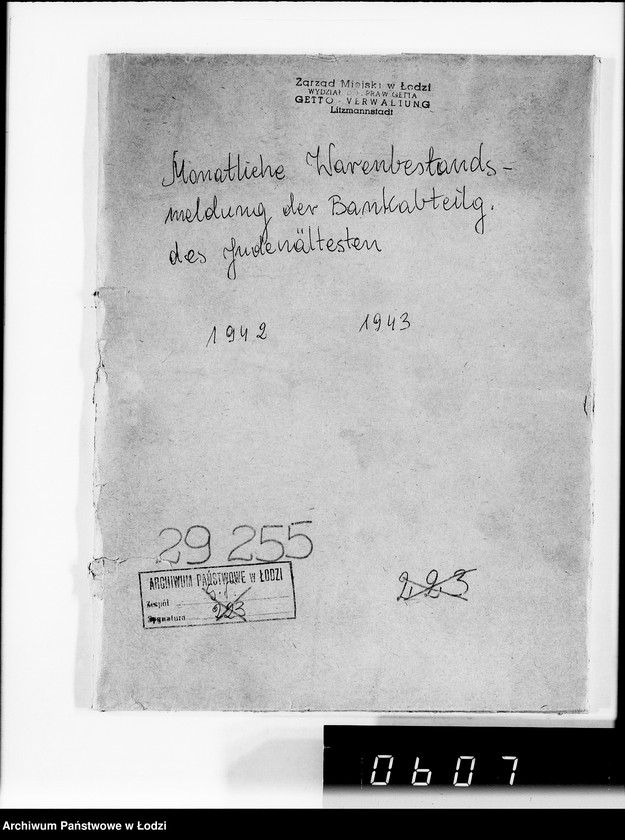 Zarząd Miejski w Łodzi
WYDZIAŁ SPRAW GETTA
GETTO-VERWALTUNG
Litzmannstadt
Monatliche Warenbestands-
meldung der Bankabteilg.
des Judenältesten
1942 1943
29 255
ARCHIWUM PAŃSTWOWE w ŁODZI
Zespół
Sygnatura 223
223
0607
Archiwum Państwowe w Łodzi